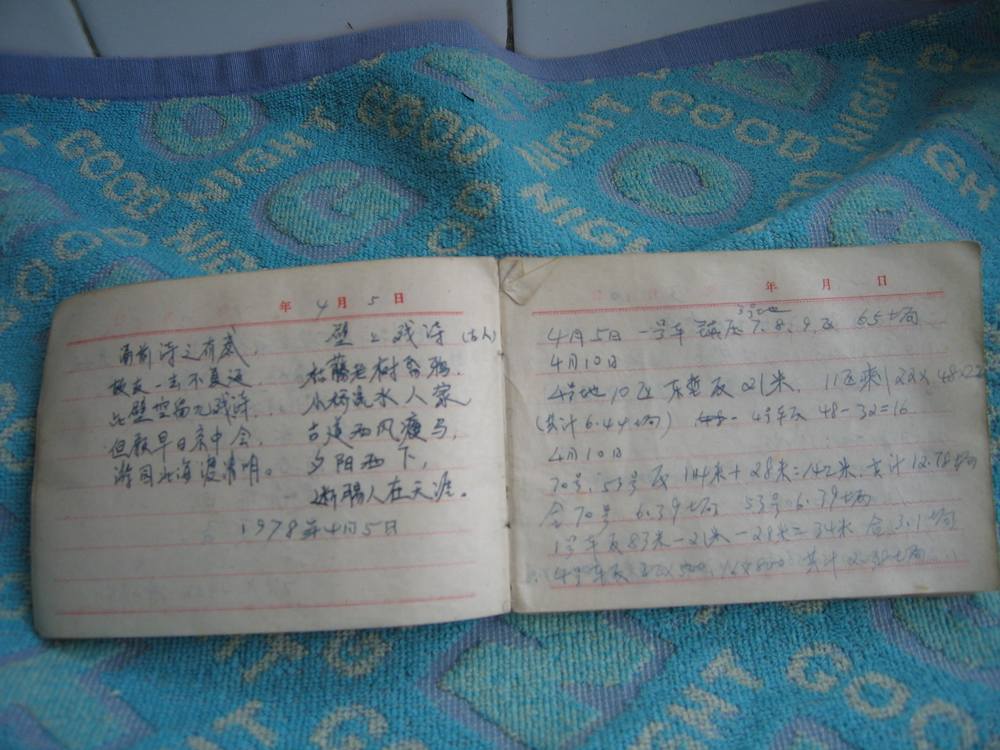 GOOD NIGHT GOOD NIGHT GOOD NIGHT
年4月5日
壁上残诗(古人)
枯藤老树昏鸦,
小桥流水人家
古道西风瘦马,
夕阳西下,
断肠人在天涯。
雨前诗之有感,
故友一去不复返,
此壁空留九残诗,
但願早日京中会,
游园北海渡清明。
1978年4月5日
年 月 日
4月5日 一号车 反7、8、9反 65土场
4月10日
4号地10区 东 反21米, 11区 122×48
(共计6.44土场) 4号车反 48-32=16
4月10日
70号、53号反 114米+28米=142米, 共计12.78土场
合70号 6.39土场 53号6.39土场
1号车反83米-21米-28米=34米 合3.1土场
4号车反 共计2.38土场